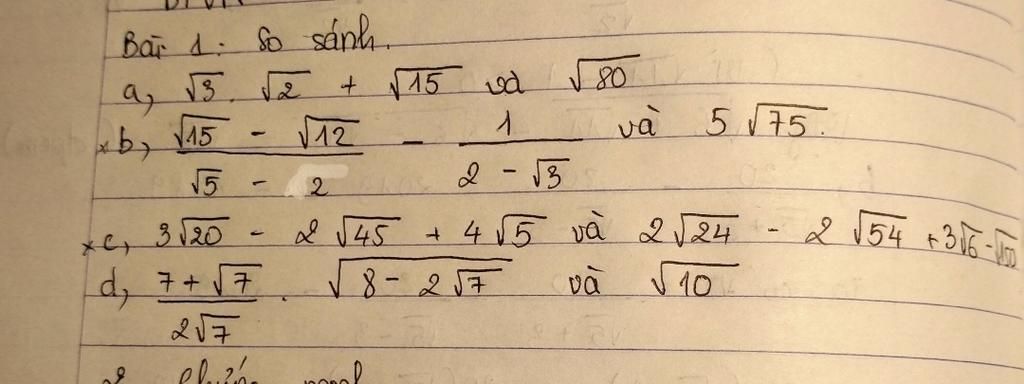 Bài 1: So sánh.
a, √3 . √2 + √15 và √80
*b, (√15 - √12)/(√5 - 2) - 1/(2 - √3) và 5√75.
*c, 3√20 - 2√45 + 4√5 và 2√24 - 2√54 + 3√6 - √100
d, (7 + √7)/(2√7) . √(8 - 2√7) và √10